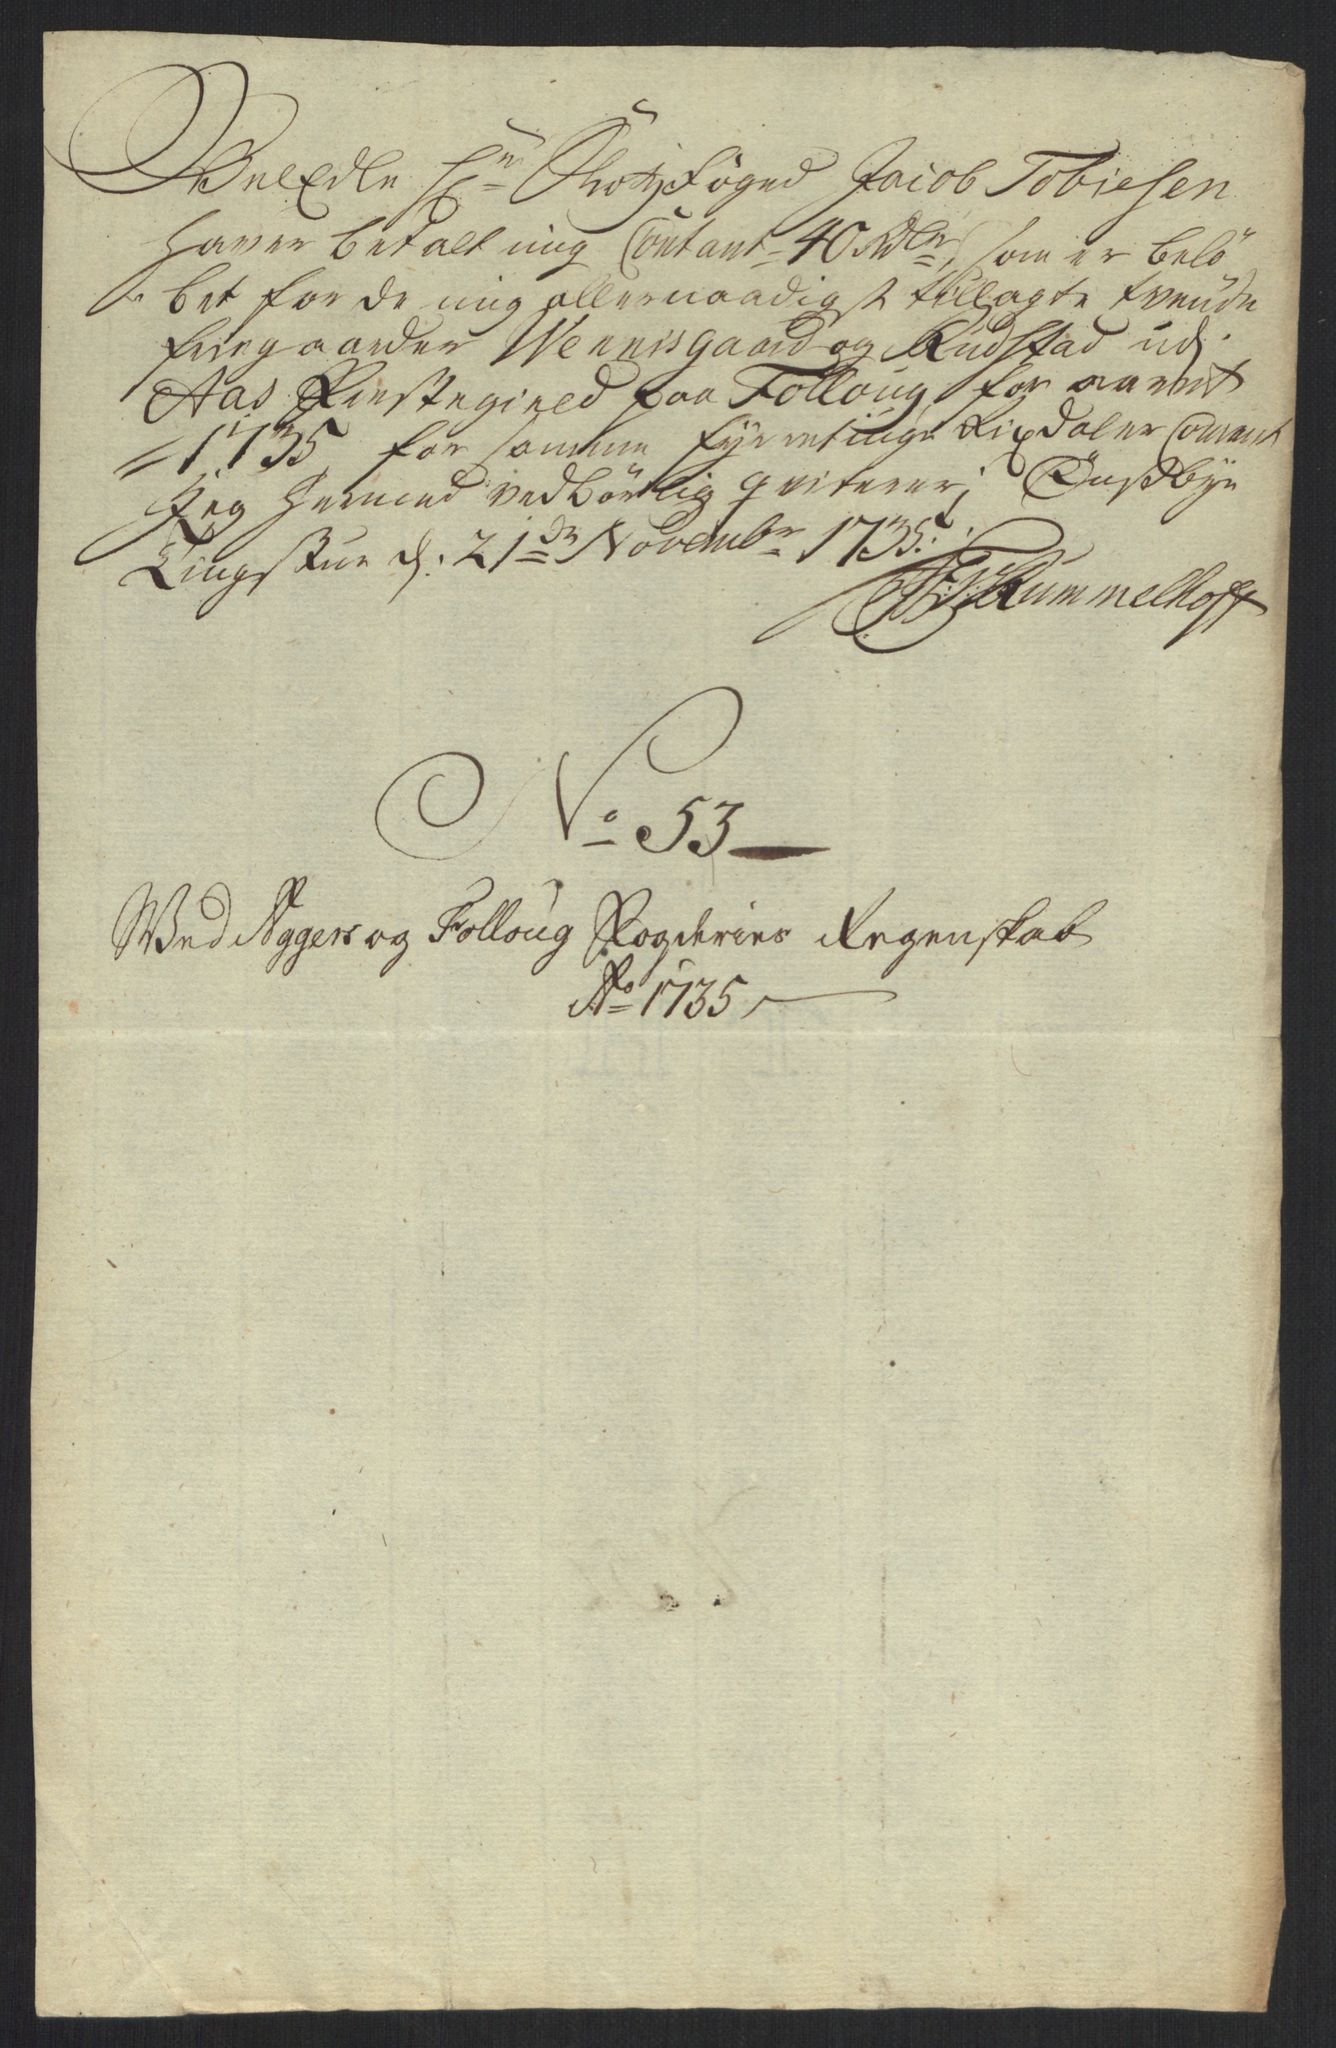 Wel Edle Hr Slotz Foged Jacob Tobiesen
haver betalt mig Contant 40 Rdlr, som er belö
bet for de mig allernaadigst tillagte tvende
friegaarder Wennisgaard og Rudstad udj
Aas Prestegield paa Folloug, for aaret
1735, for samme fyrretiuge Rixdaler Courant
Jeg hermed vedbörlig qviterer, Önsdbye
Tingstue d: 21de Novembr 1735.
Rummelhoff
No 53
Wed Aggers og Folloug Fogderies Regenskab
Ao 1735